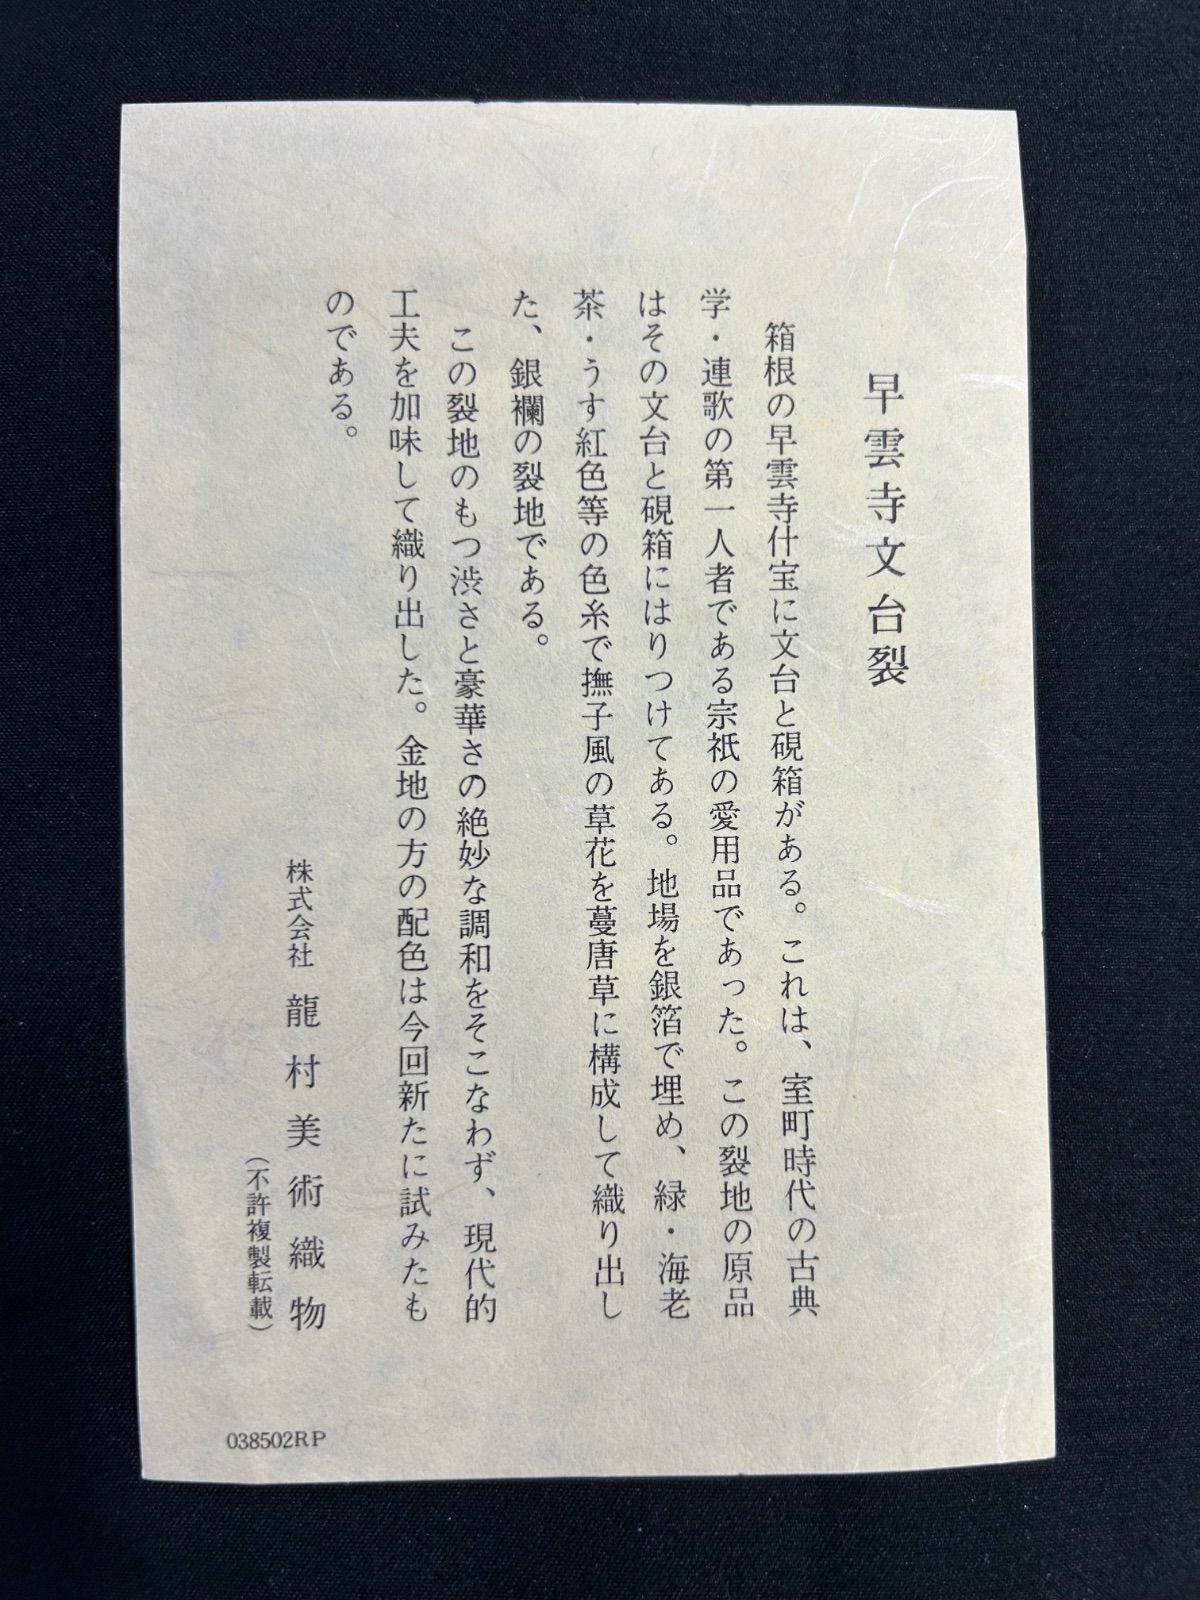 早雲寺文台裂
箱根の早雲寺什宝に文台と硯箱がある。これは、室町時代の古典
学・連歌の第一人者である宗祇の愛用品であった。この裂地の原品
はその文台と硯箱にはりつけてある。地場を銀箔で埋め、緑・海老
茶・うす紅色等の色糸で撫子風の草花を蔓唐草に構成して織り出し
た、銀襴の裂地である。
この裂地のもつ渋さと豪華さの絶妙な調和をそこなわず、現代的
工夫を加味して織り出した。金地の方の配色は今回新たに試みたも
のである。
株式会社 龍村美術織物
（不許複製転載）
038502RP